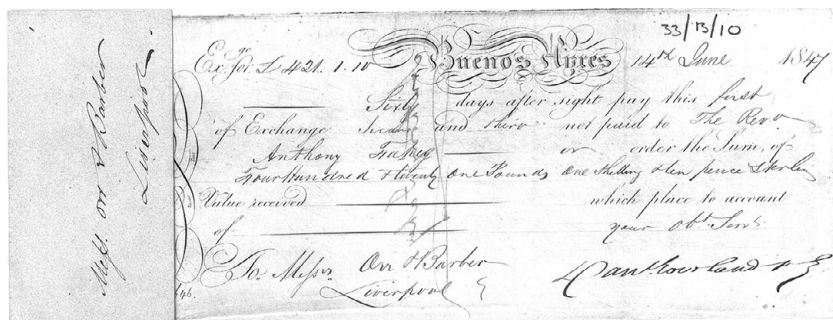 33/13/10
Messrs. Orr & Barber
Liverpool.
Ex. for £ 421.1.10 Buenos Ayres 14th June 1847
Sixty days after sight pay this first
of Exchange second and third not paid to The Revd
Anthony Fahey or order the Sum of
Four Hundred & twenty One Pounds One Shilling & ten pence Sterling
Value received which place to account
of your obt Servts
To Messrs. Orr & Barber
Liverpool